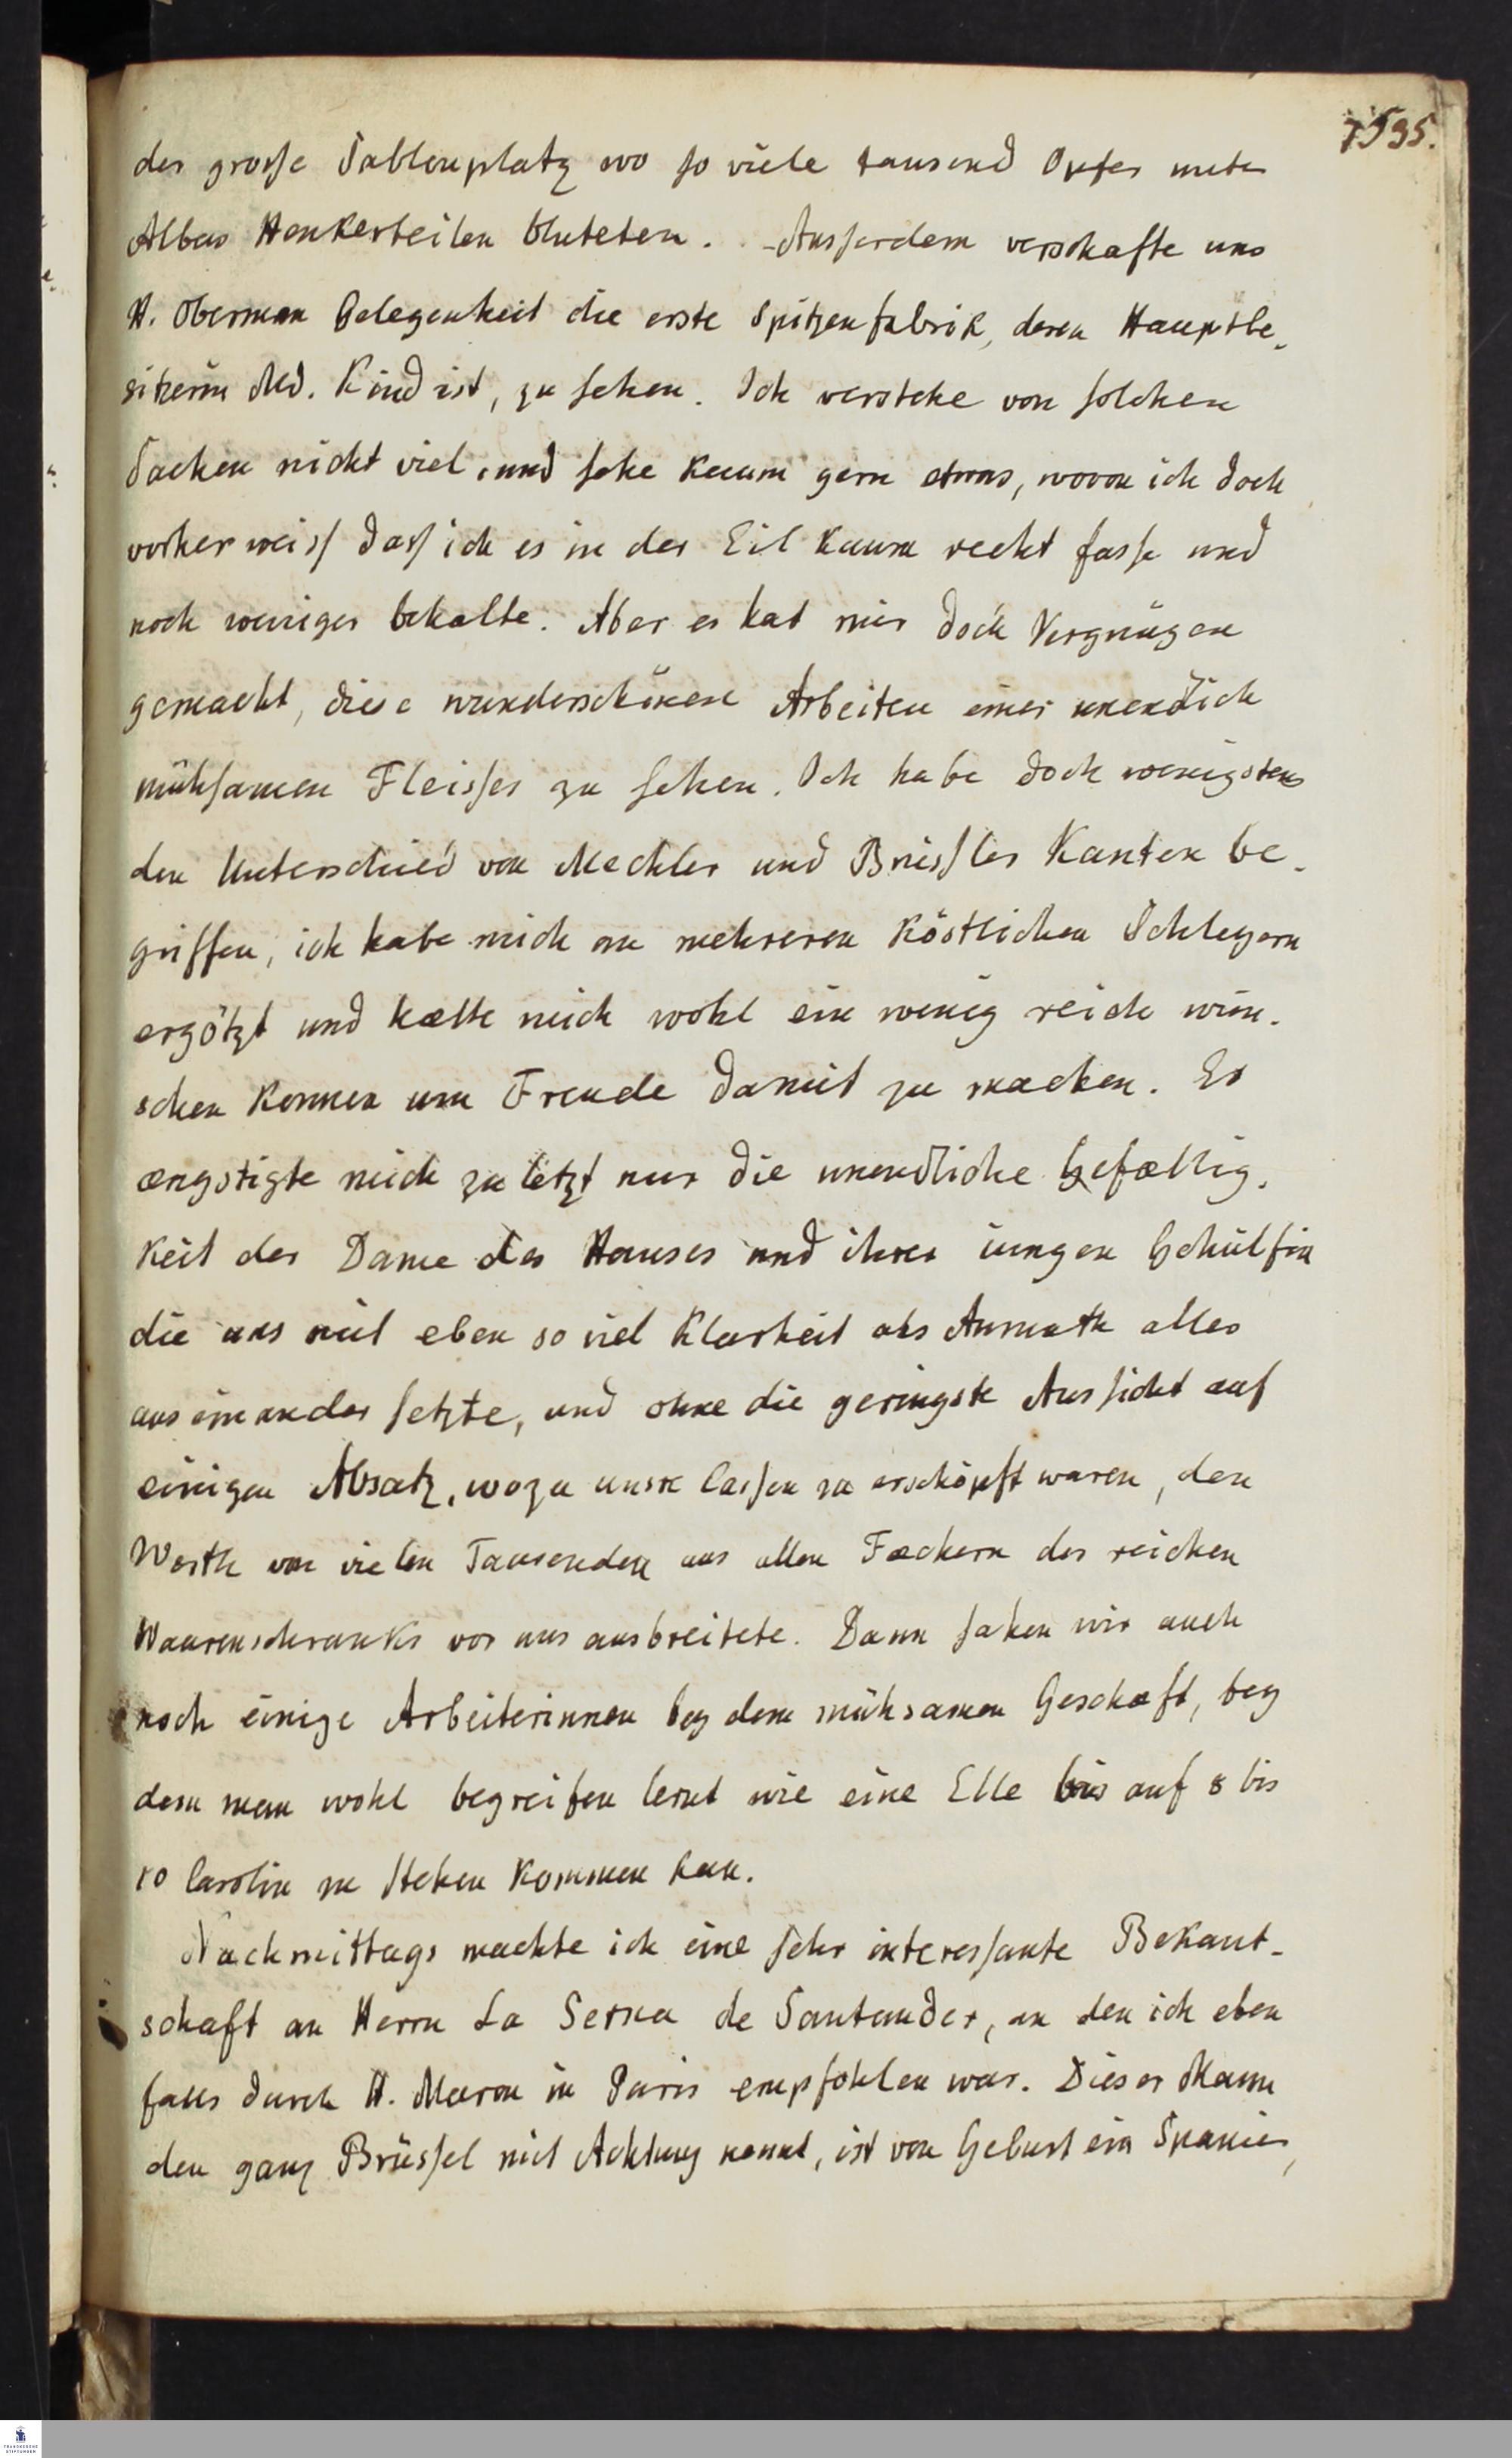 7595.
der grosse Sablonplatz wo so viele tausend Opfer unter
Albas Henkerbeilen bluteten. Ausserdem verschafte uns
H. Oberman Gelegenheit die erste Spitzenfabrik, deren Hauptbe-
sitzerin Md. Kind ist, zu sehen. Ich verstehe von solchen
Sachen nicht viel, und sehe kaum gern etwas, wovon ich doch
vorher weiss dass ich es in der Eil kaum recht fasse und
noch weniger behalte. Aber es hat mir doch Vergnügen
gemacht, diese wunderschönen Arbeiten eines unendlich
mühsamen Fleisses zu sehen. Ich habe doch wenigstens
den Unterschied von Mechler und Brüssler Kanten be-
griffen, ich habe mich an mehreren köstlichen Schleyern
ergötzt und hætte mich wohl ein wenig reich wün-
schen konnen um Freude damit zu machen. Es
ængstigte mich zuletzt nur die unendliche Gefællig-
keit der Dame des Hauses und ihrer iungen Gehülfin
die uns mit eben so viel Klarheit als Anmuth alles
auseinander setzte, und ohne die geringste Aussicht auf
einigen Absatz, wozu unsre Cassen zu erschöpft waren, den
Werth von vielen Tausenden aus allen Fæchern des reichen
Waarenschranks vor uns ausbreitete. Dann sahen wir auch
noch einige Arbeiterinnen bey dem mühsamen Geschæft, bey
dem man wohl begreifen lernt wie eine Elle bis auf 8 bis
10 Carolin zu stehen kommen kan.
Nachmittags machte ich eine sehr interessante Bekant-
schaft an Herrn La Serna de Santander, an den ich eben
falls durch H. Maron in Paris empfohlen war. Dieser Mann
den ganz Brüssel mit Achtung nennt, ist von Geburt ein Spanier,
FRANCKESCHE
STIFTUNGEN